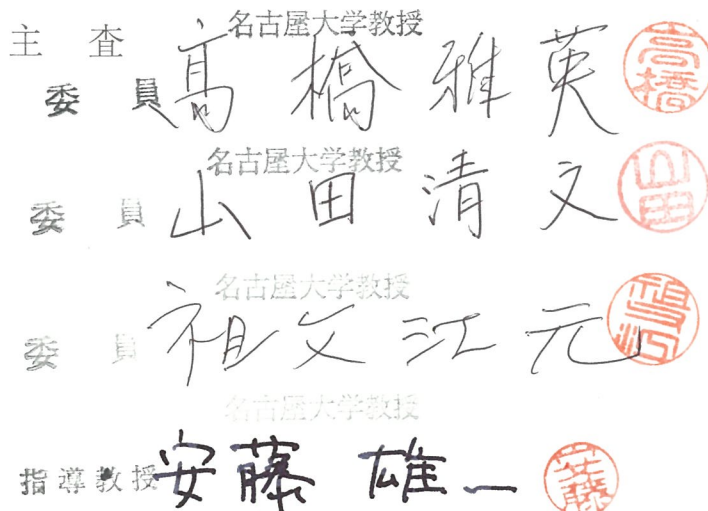 名古屋大学教授
主 査
委 員 髙 橋 雅 英 高橋
名古屋大学教授
委 員 山 田 清 文 山田
名古屋大学教授
委 員 祖父江 元
名古屋大学教授
指導教授 安藤 雄一 安藤